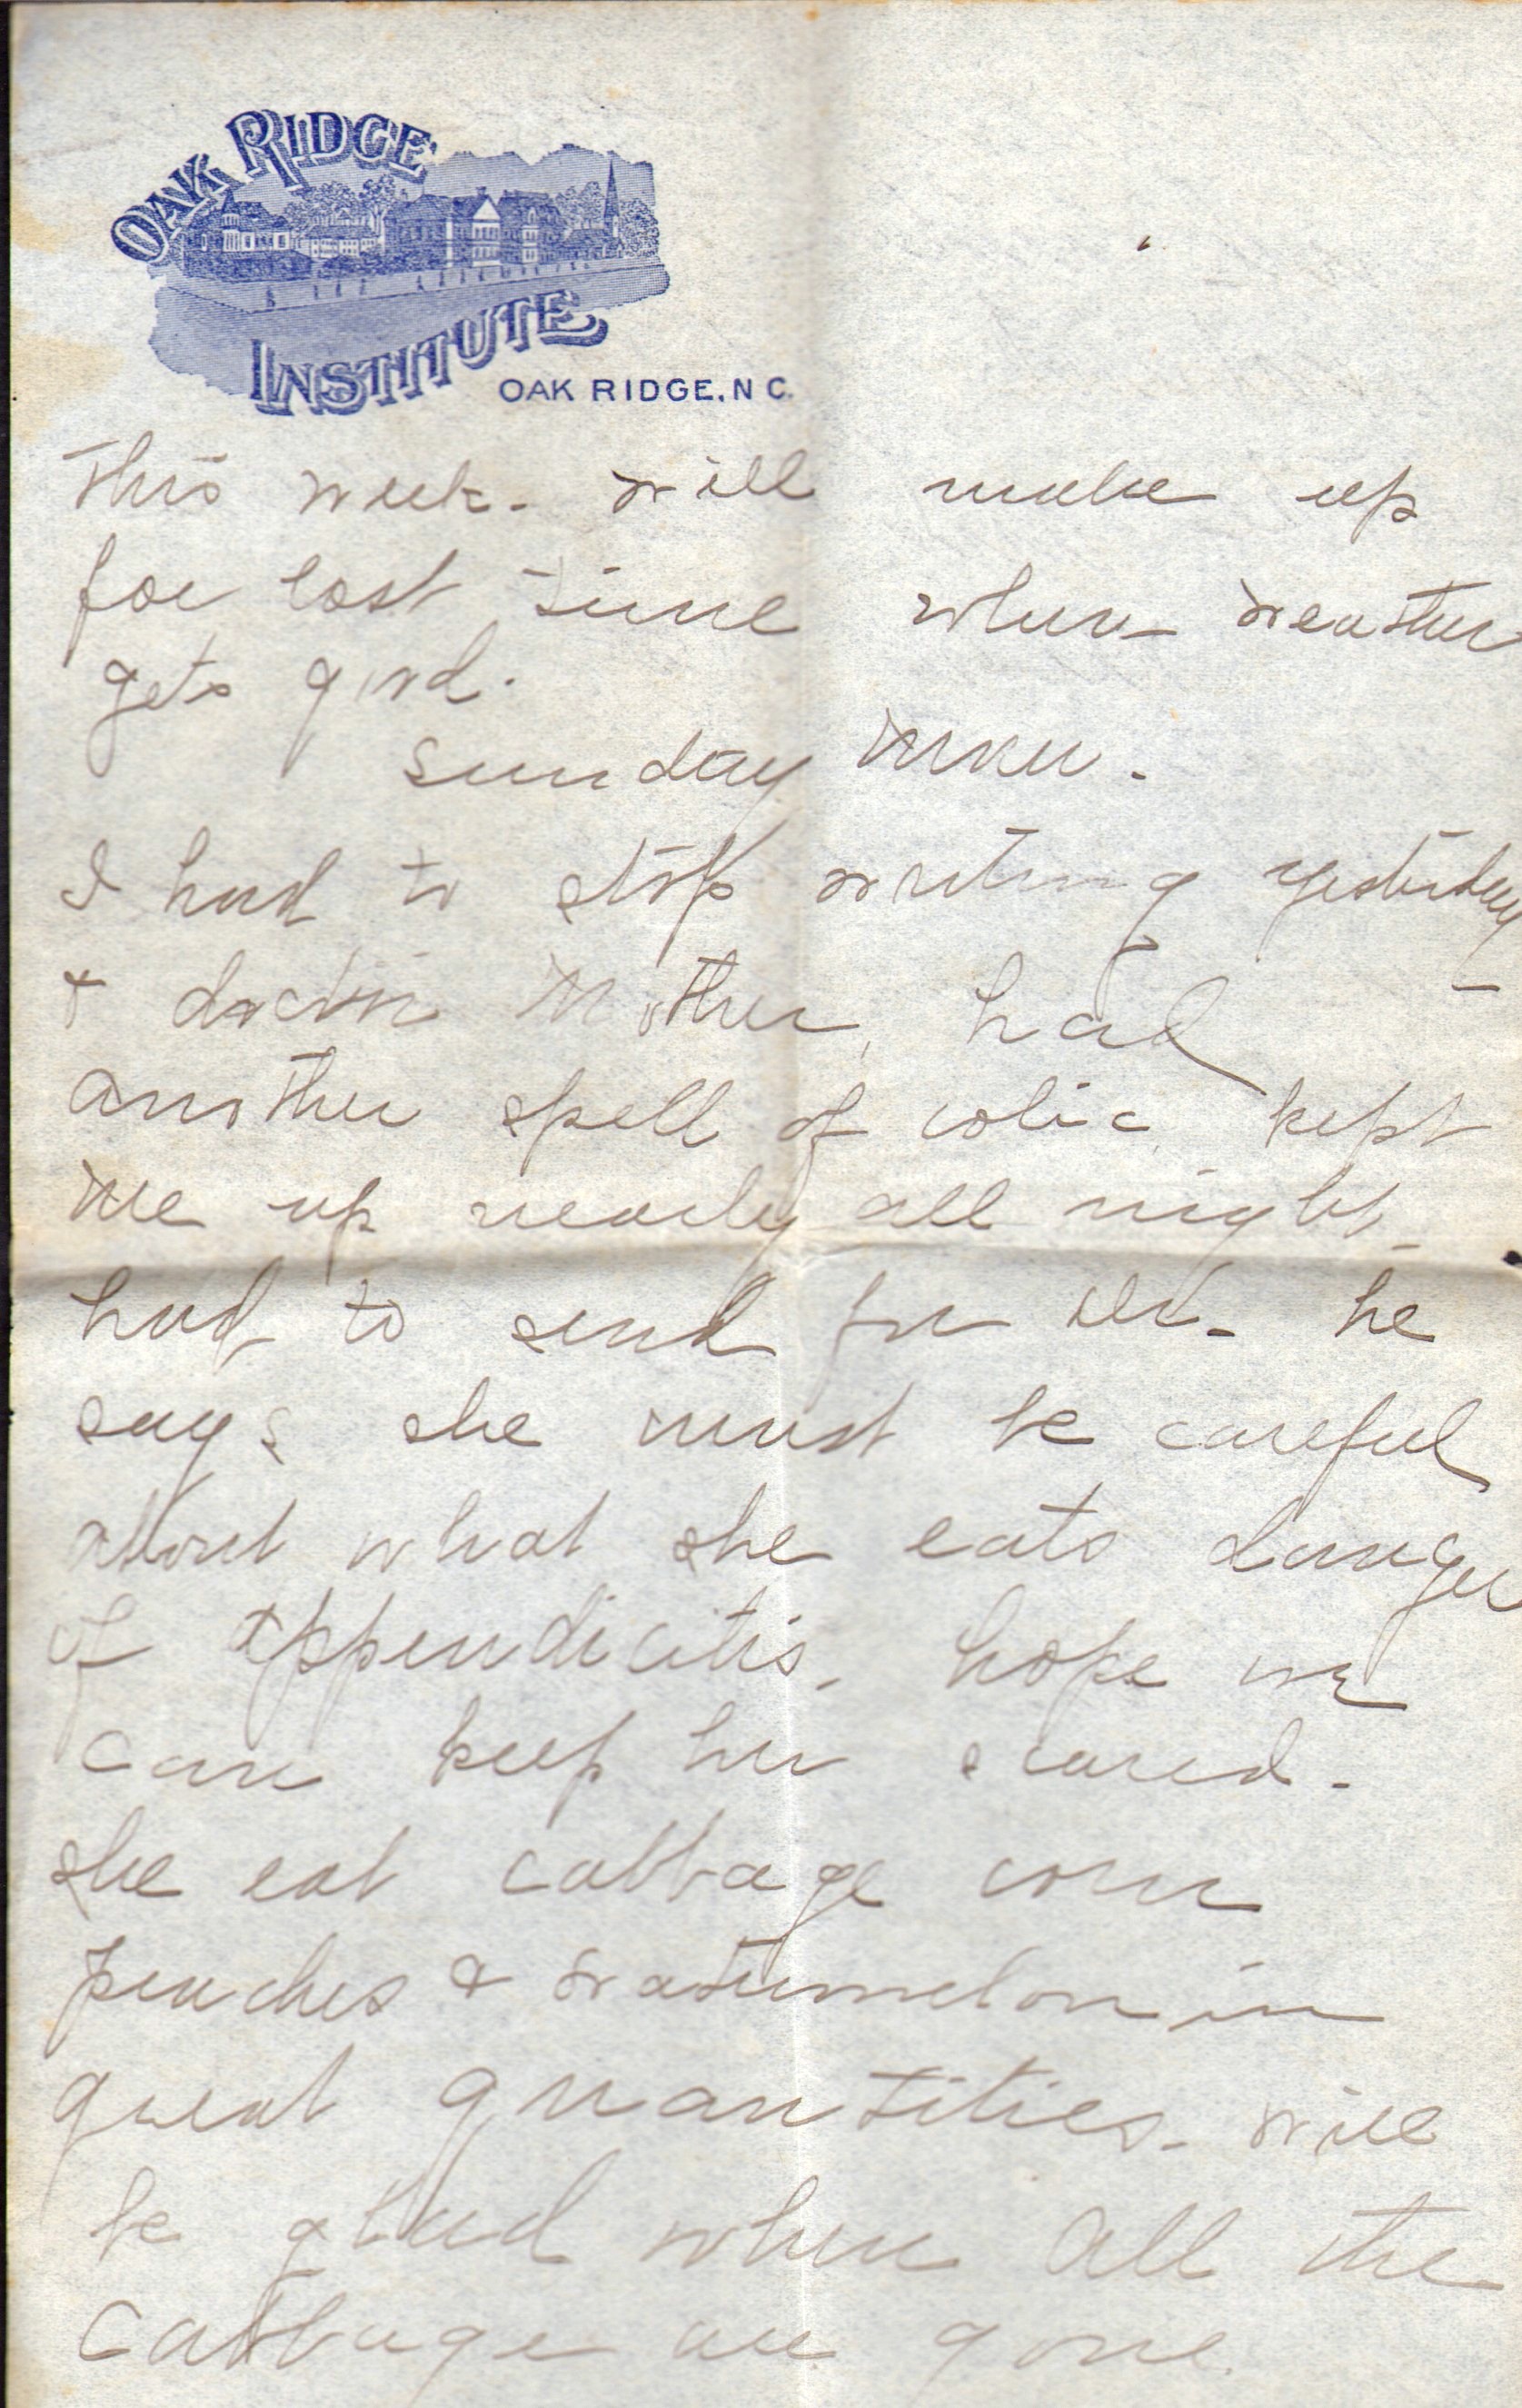 OAK RIDGE
INSTITUTE
OAK RIDGE, N C.
This week. will make up
for lost time when weather
gets good.
Sunday
I had to stop writing yesterday
& doctor Mother, had
another spell of colic, kept
me up nearly all night
had to send for Dr. he
says she must be careful
about what she eats danger
of appendicitis. hope we
can keep her scared.
she eat cabbage corn
peaches & watermelon in
great quantities. will
be glad when all the
cabbage are gone.